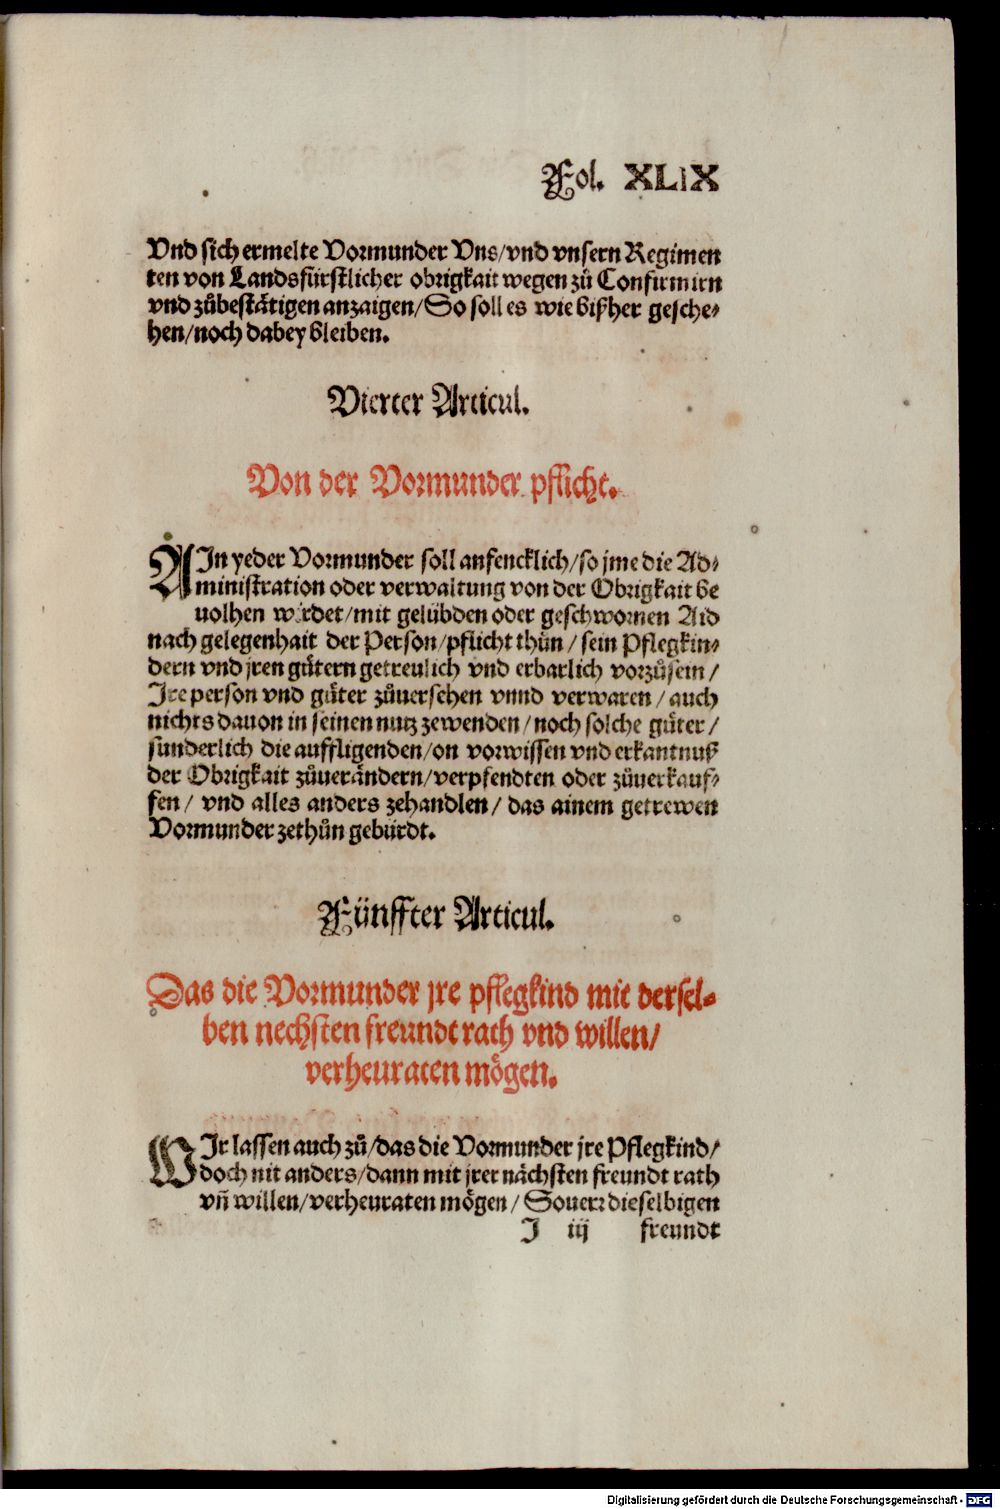 Fol. XLIX
Vnd sich ermelte Vormunder Vns/vnd vnsern Regimen
ten von Landsfürstlicher obrigkait wegen zů Confirmirn
vnd zůbestätigen anzaigen/So soll es wie bißher gesche⸗
hen/noch dabey bleiben.
Vierter Articul.
Von der Vormunder pflicht.
AIn yeder Vormunder soll anfencklich/so jme die Ad⸗
ministration oder verwaltung von der Obrigkait be
uolhen wirdet/mit gelübden oder geschwornen Aid
nach gelegenhait der Person/pflicht thůn/ sein Pflegkin⸗
dern vnd jren gütern getreulich vnd erbarlich vorzůsein/
Ire person vnd güter zůuersehen vnnd verwaren / auch
nichts dauon in seinen nutz zewenden/noch solche güter/
sunderlich die auffligenden/on vorwissen vnd erkantnuß
der Obrigkait zůuerändern/verpfendten oder zůuerkauf⸗
fen/ vnd alles anders zehandlen/ das ainem getrewen
Vormunder zethůn gebürdt.
Fünffter Articul.
Das die Vormunder jre pflegkind mit dersel⸗
ben nechsten freundt rath vnd willen/
verheuraten mögen.
WIr lassen auch zů/das die Vormunder jre Pflegkind/
doch nit anders/dann mit jrer nächsten freundt rath
vñ willen/verheuraten mögen/ Souerr dieselbigen
J iij freundt
Digitalisierung gefördert durch die Deutsche Forschungsgemeinschaft - DFG